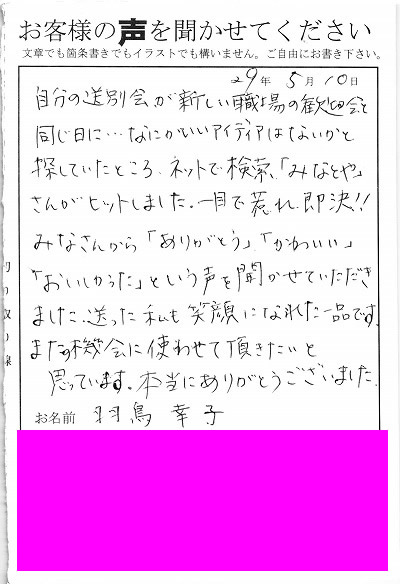 お客様の声を聞かせてください
文章でも箇条書きでもイラストでも構いません。ご自由にお書き下さい。
29年 5月 10日
自分の送別会が新しい職場の歓迎会と
同じ日に…なにかいいアイディアはないかと
探していたところ、ネットで検索、「みなとや」
さんがヒットしました。一目で惹れ、即決!!
みなさんから「ありがとう」、「かわいい」
「おいしかった」という声を聞かせていただき
ました。送った私も笑顔になれた一品です。
またの機会に使わせて頂きたいと
思っています。本当にありがとうございました。
お名前 羽鳥 幸子
切り取り線